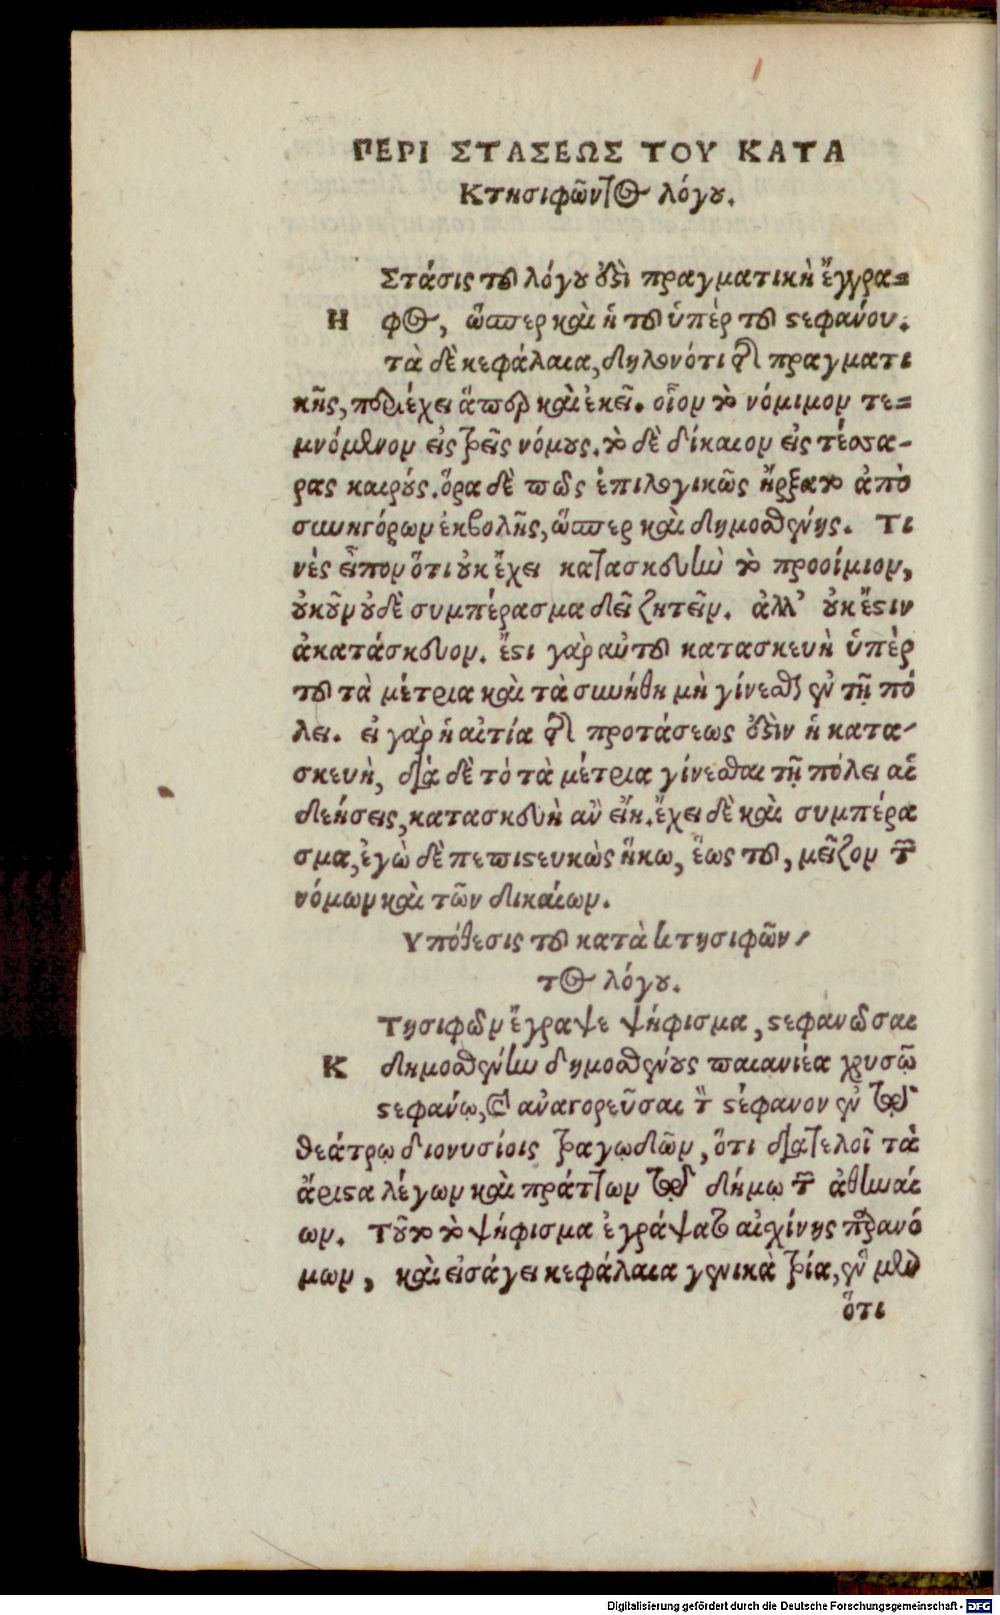 ΠΕΡΙ ΣΤΑΣΕΩΣ ΤΟΥ ΚΑΤΑ
Κτησιφῶντος λόγου.
Στάσις τοῦ λόγου ἐστὶ πραγματικὴ ἔγγρα=
Η φος, ὥσπερ καὶ ἡ τοῦ ὑπὲρ τοῦ στεφάνου.
τὰ δὲ κεφάλαια, δηλονότι τῆς πραγματι
κῆς, περιέχει ἅπερ καὶ ἐκεῖ. οἷον τὸ νόμιμον τε=
μνόμενον εἰς τρεῖς νόμους. τὸ δὲ δίκαιον εἰς τέσσα-
ρας καιρούς. ὅρα δὲ πῶς ἐπιλογικῶς ἤρξατο ἀπὸ
συνηγόρων ἐκβολῆς, ὥσπερ καὶ δημοσθένης. Τι
νές εἶπον ὅτι οὐκ ἔχει κατασκευὴν τὸ προοίμιον,
οὐκοῦν οὐδὲ συμπέρασμα δεῖ ζητεῖν. ἀλλ’ οὐκ ἔστιν
ἀκατάσκευον. ἔστι γὰρ αὐτοῦ κατασκευὴ ὑπὲρ
τοῦ τὰ μέτρια καὶ τὰ συνήθη μὴ γίνεσθαι ἐν τῇ πό
λει. εἰ γὰρ ἡ αἰτία τῆς προτάσεως ἐστὶν ἡ κατα-
σκευὴ, διὰ δὲ τὸ τὰ μέτρια γίνεσθαι τῇ πόλει αἱ
δεήσεις, κατασκευὴ αὖ εἴη. ἔχει δὲ καὶ συμπέρα
σμα, ἐγὼ δὲ πεπιστευκὼς ἥκω, ἕως τοῦ, μεῖζον τῶν
νόμων καὶ τῶν δικαίων.
Υπόθεσις τοῦ κατὰ κτησιφῶν-
τος λόγου.
Τησιφῶν ἔγραψε ψήφισμα, στεφανῶσαι
Κ δημοσθένην δημοσθένους παιανιέα χρυσῷ
στεφάνῳ, καὶ ἀναγορεῦσαι τὸν στέφανον ἐν τῷ
θεάτρῳ διονυσίοις τραγῳδῶν, ὅτι διατελοῖ τὰ
ἄριστα λέγων καὶ πράττων τῷ δήμῳ τῶν ἀθηναί
ων. Τοῦτο τὸ ψήφισμα ἐγράψατο αἰσχίνης παρανό
μων, καὶ εἰσάγει κεφάλαια γενικὰ τρία, ἓν μὲν
ὅτι
Digitalisierung gefördert durch die Deutsche Forschungsgemeinschaft - DFG